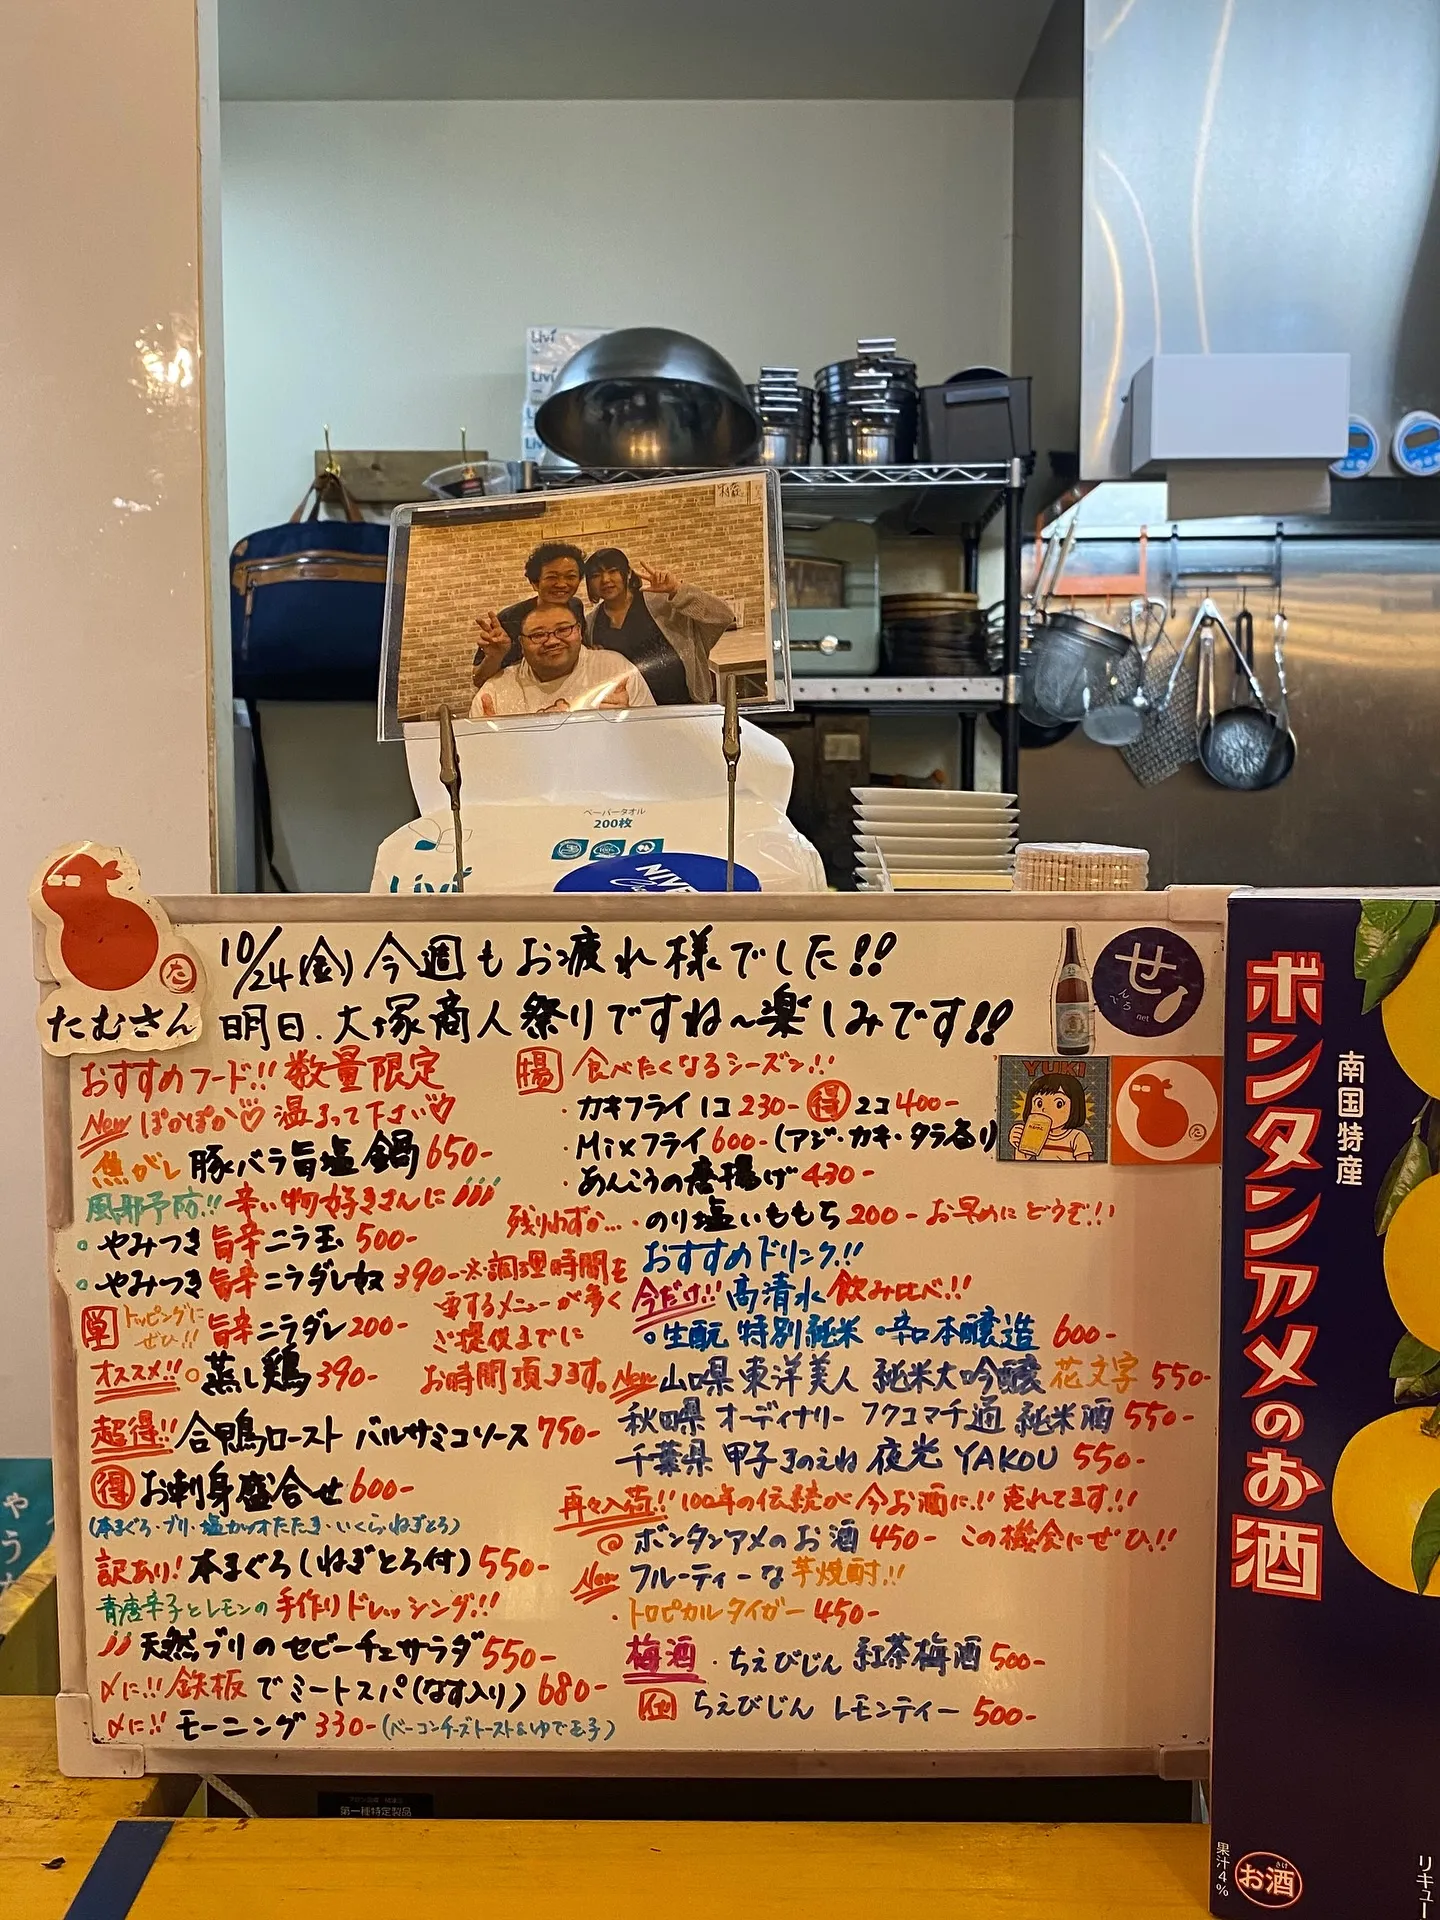 Livi
Livi
ペーパータオル
200枚
Livi
NIVE
たむさん
た
10/24(金)今週もお疲れ様でした!!
明日、大塚商人祭りですね〜楽しみです!!
せ
んべろ
net
YUKI
おすすめフード!! 数量限定
New ぽかぽか♡ 温まって下さい♡
焦がし 豚バラ旨塩鍋 650-
風邪予防!! 辛い物好きさんに
・やみつき旨辛ニラ玉 500-
・やみつき旨辛ニラダレ奴 390-
単 トッピングにぜひ!! 旨辛ニラダレ 200-
※調理時間を
要するメニューが多く
ご提供までに
お時間頂きます。
オススメ!! ○蒸し鶏 390-
超得!! 合鴨ロースト バルサミコソース 750-
得 お刺身盛合せ 600-
(本まぐろ・ブリ・塩カツオたたき・いくら・ねぎとろ)
訳あり! 本まぐろ(ねぎとろ付) 550-
青唐辛子とレモンの 手作りドレッシング!!
天然ブリのセビーチェサラダ 550-
〆に!! 鉄板でミートスパ(なす入り) 680-
〆に!! モーニング 330- (ベーコンチーズトースト&ゆで玉子)
揚 食べたくなるシーズン!!
・カキフライ 1コ 230- 得 2コ 400-
・Mixフライ 600- (アジ・カキ・タラ有り)
・あんこうの唐揚げ 430-
残りわずか… ・のり塩いももち 200- お早めにどうぞ!!
おすすめドリンク!!
今だけ!! 高清水 飲み比べ!!
・生酛 特別純米 ・辛口本醸造 600-
New 山口県 東洋美人 純米大吟醸 花文字 550-
秋田県 オーディナリー フクコマチ通 純米酒 550-
千葉県 甲子きのえね 夜光 YAKOU 550-
再々入荷!! 100年の伝統が今お酒に!! 売れてます!!
@ ボンタンアメのお酒 450- この機会にぜひ!!
New フルーティーな芋焼酎!!
・トロピカルタイガー 450-
梅酒 ・ちえびじん 紅茶梅酒 500-
他 ちえびじん レモンティー 500-
南国特産
ボンタンアメのお酒
果汁4%
お酒
リキュー
第一種特定製品
ゃう